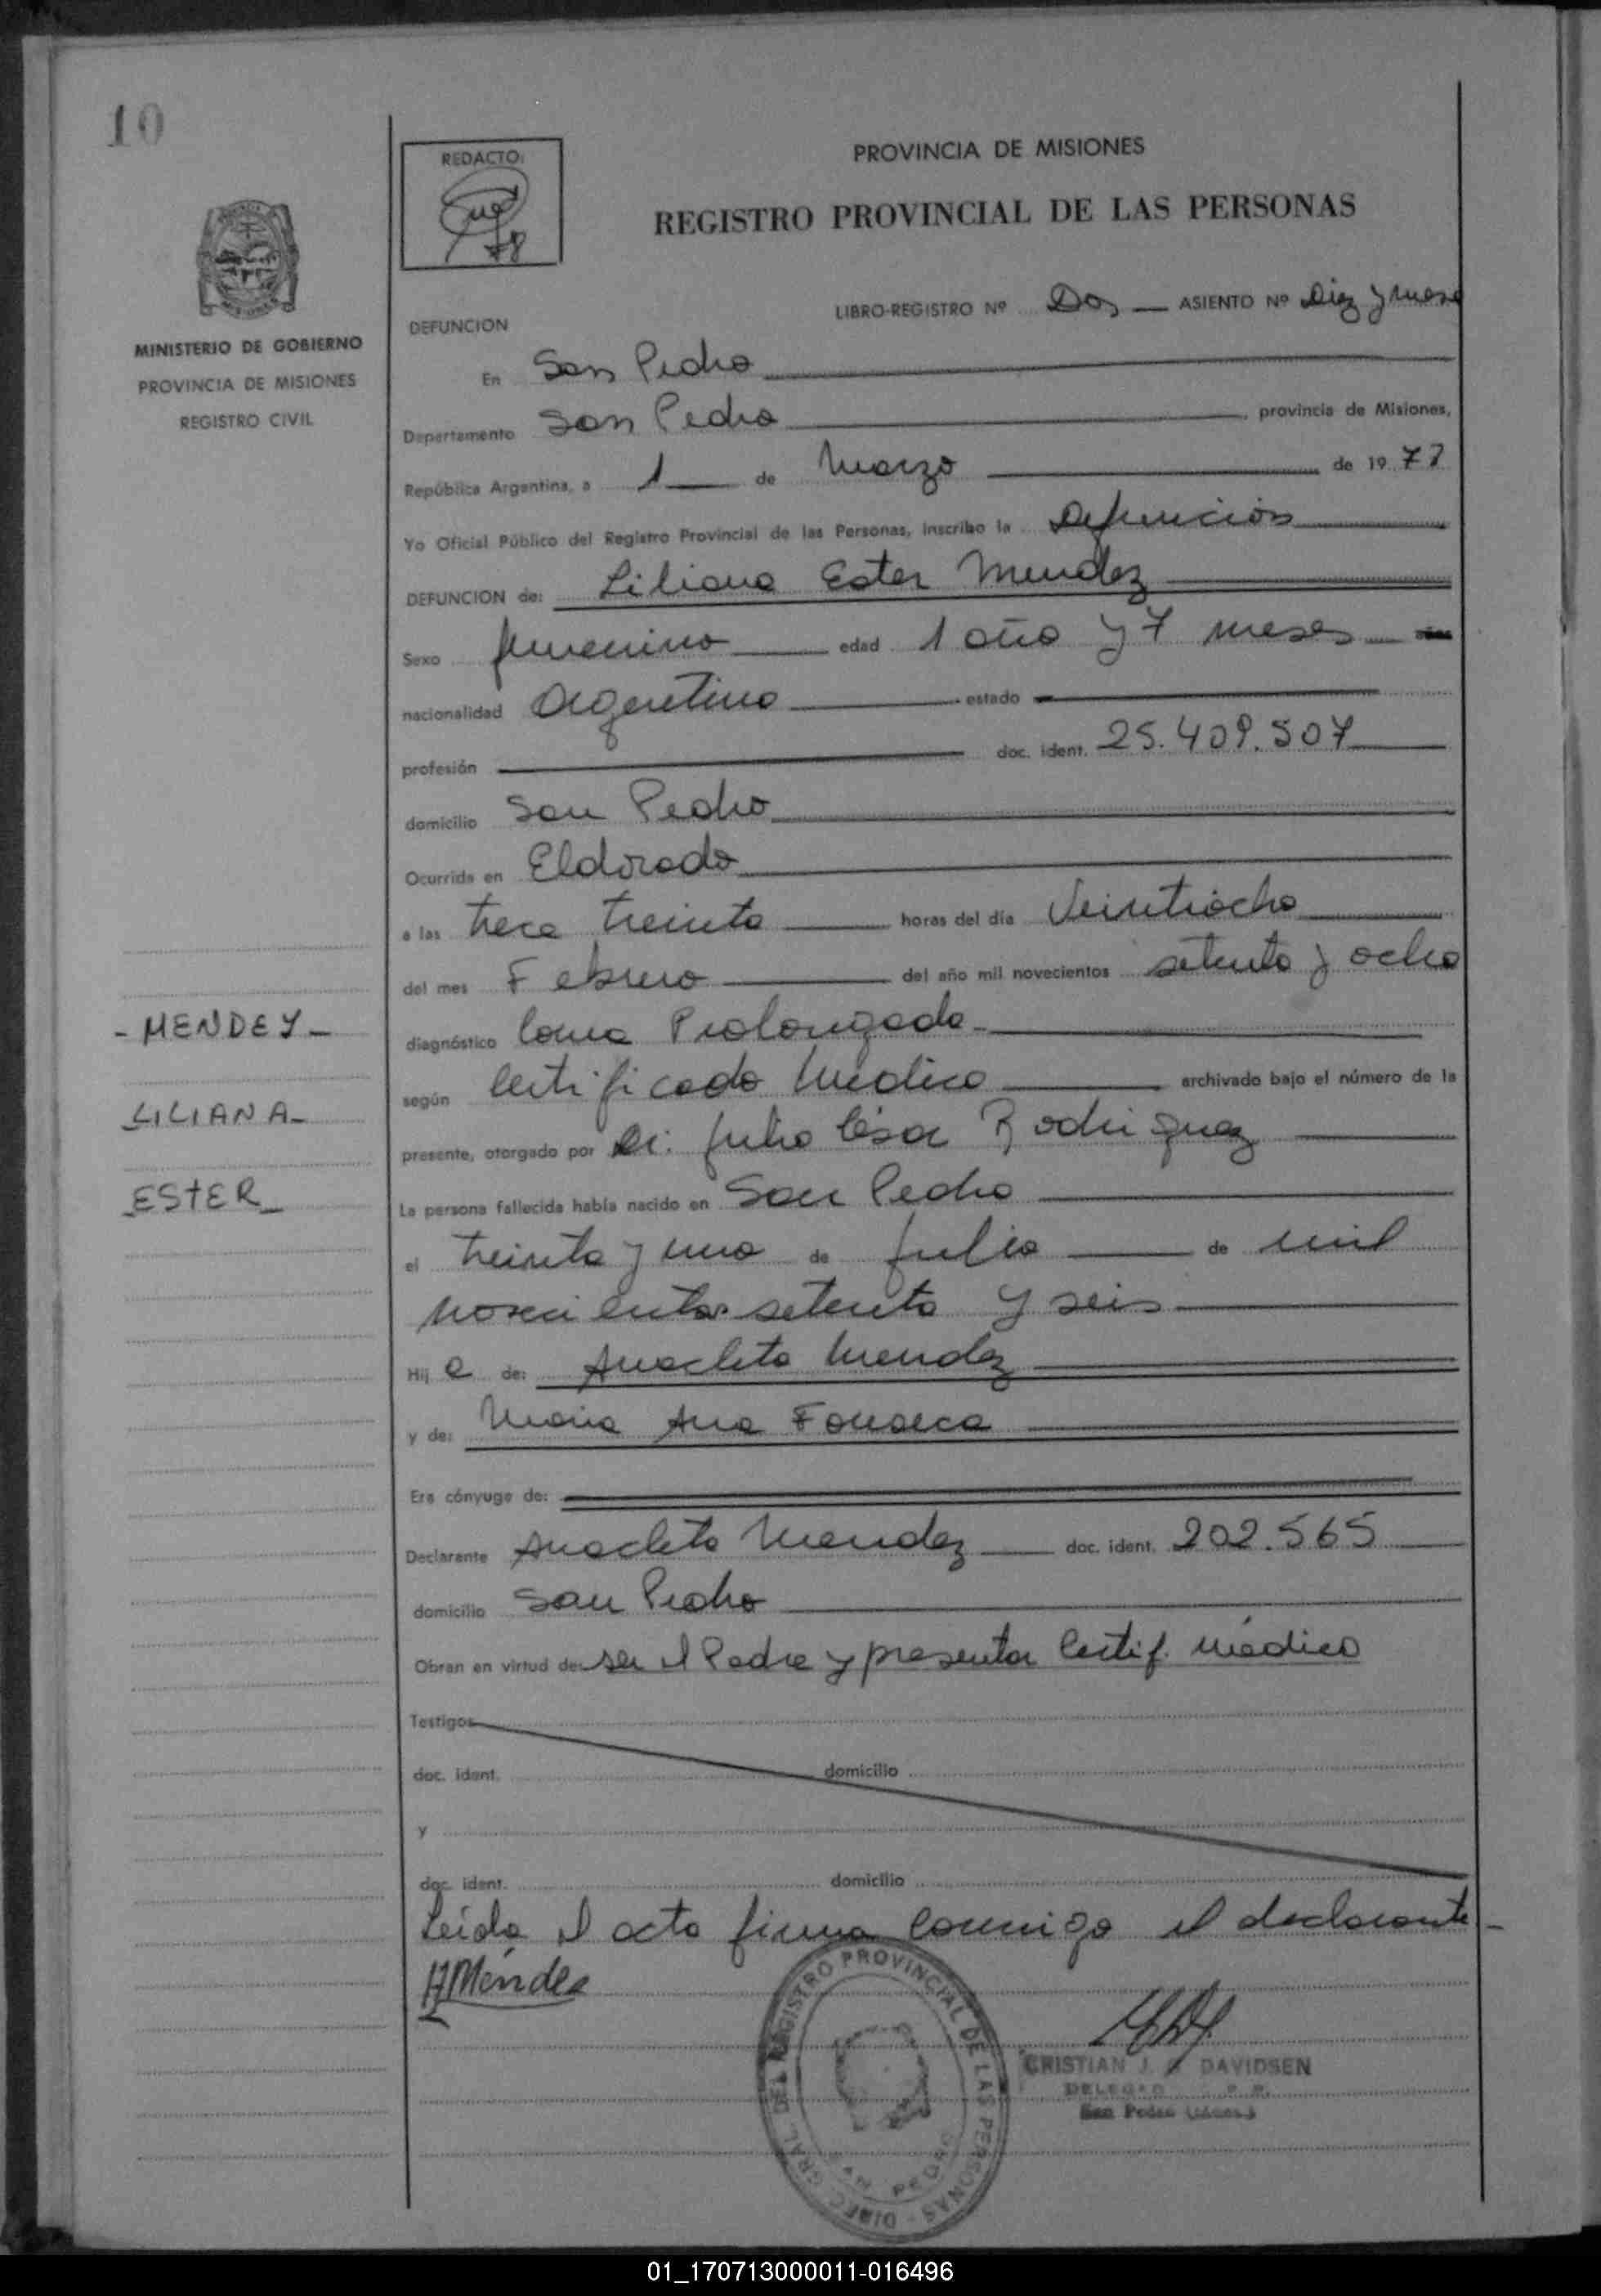 10
REDACTO:
78
PROVINCIA DE MISIONES
REGISTRO PROVINCIAL DE LAS PERSONAS
LIBRO-REGISTRO Nº Dos ASIENTO Nº Diez y nueve
MINISTERIO DE GOBIERNO
PROVINCIA DE MISIONES
REGISTRO CIVIL
DEFUNCION
En San Pedro
Departamento San Pedro, provincia de Misiones,
República Argentina, a 1 de Marzo de 1977
Yo Oficial Público del Registro Provincial de las Personas, inscribo la Defunción
DEFUNCION de: Liliana Ester Mendez
Sexo femenino edad 1 año y 7 meses
nacionalidad Argentina estado
profesión doc. ident. 25.409.507
domicilio San Pedro
Ocurrida en Eldorado
a las trece treinta horas del día Veintiocho
del mes Febrero del año mil novecientos setenta y ocho
- MENDEZ -
diagnóstico Coma Prolongado
según Certificado Médico archivado bajo el número de la
LILIANA -
presente, otorgado por Dr. Julio César Rodriguez
ESTER -
La persona fallecida había nacido en San Pedro
el treinta y uno de Julio de mil
novecientos setenta y seis
Hija de: Anacleto Mendez
y de: Maria Ana Fonseca
Era cónyuge de:
Declarante Anacleto Mendez doc. ident. 202.565
domicilio San Pedro
Obran en virtud de: ser el Padre y presentar Certif. médico
Testigos
doc. ident. domicilio
y
doc. ident. domicilio
Leída el acta firma conmigo el declarante -
A Méndez
DIREC. GRAL. DEL REGISTRO PROVINCIAL DE LAS PERSONAS -
SAN PEDRO
CRISTIAN J. DAVIDSEN
San Pedro
01_170713000011-016496